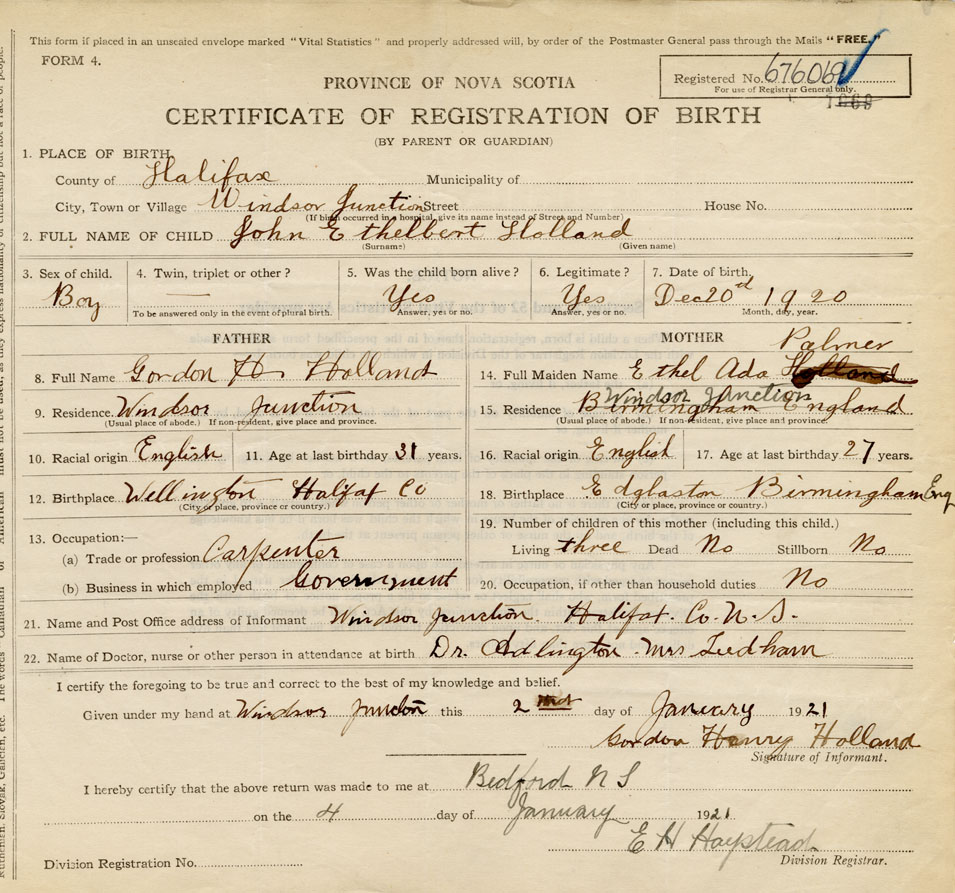 This form if placed in an unsealed envelope marked "Vital Statistics" and properly addressed will, by order of the Postmaster General pass through the Mails "FREE."
FORM 4.
Registered No. 676069
For use of Registrar General only.
PROVINCE OF NOVA SCOTIA
CERTIFICATE OF REGISTRATION OF BIRTH
(BY PARENT OR GUARDIAN)
1. PLACE OF BIRTH
County of Halifax Municipality of
City, Town or Village Windsor Junction Street House No.
(If birth occurred in a hospital, give its name instead of Street and Number)
2. FULL NAME OF CHILD John Ethelbert Holland
(Surname) (Given name)
3. Sex of child. 4. Twin, triplet or other? 5. Was the child born alive? 6. Legitimate? 7. Date of birth,
Boy — Yes Yes Dec 20th 1920
To be answered only in the event of plural birth. Answer, yes or no. Answer, yes or no. Month, day, year.
FATHER
8. Full Name Gordon H. Holland
9. Residence. Windsor Junction
(Usual place of abode.) If non-resident, give place and province.
10. Racial origin English 11. Age at last birthday 31 years.
12. Birthplace Wellington Halifax Co
(City or place, province or country.)
13. Occupation:—
(a) Trade or profession Carpenter
(b) Business in which employed Government
MOTHER
Palmer
14. Full Maiden Name Ethel Ada Holland
Windsor Junction
15. Residence Birmingham England
(Usual place of abode.) If non-resident, give place and province.
16. Racial origin English 17. Age at last birthday 27 years.
18. Birthplace Edglaston Birmingham Eng
(City or place, province or country.)
19. Number of children of this mother (including this child.)
Living three Dead No Stillborn No
20. Occupation, if other than household duties No
21. Name and Post Office address of Informant Windsor Junction. Halifax. Co. N. S.
22. Name of Doctor, nurse or other person in attendance at birth Dr. Adlington Mrs
I certify the foregoing to be true and correct to the best of my knowledge and belief.
Given under my hand at Windsor Junction this 2 day of January 1921
Gordon Henry Holland
Signature of Informant.
I hereby certify that the above return was made to me at Bedford N S
on the 4 day of January 1921
E H Haystead
Division Registration No. Division Registrar.